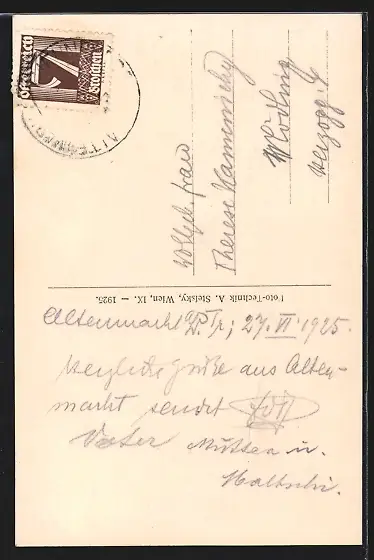 Österreich
7
Groschen
ALTENMARKT
Wohlgeb. Frau
Therese Kamenisky
Mödling
Herzogg. 4
Foto-Technik A. Stefsky, Wien, IX. — 1925.
Altenmarkt a/d Tr; 27. VI 1925.
Herzliche Grüße aus Alten-
markt sendet
Vater Mutter u.